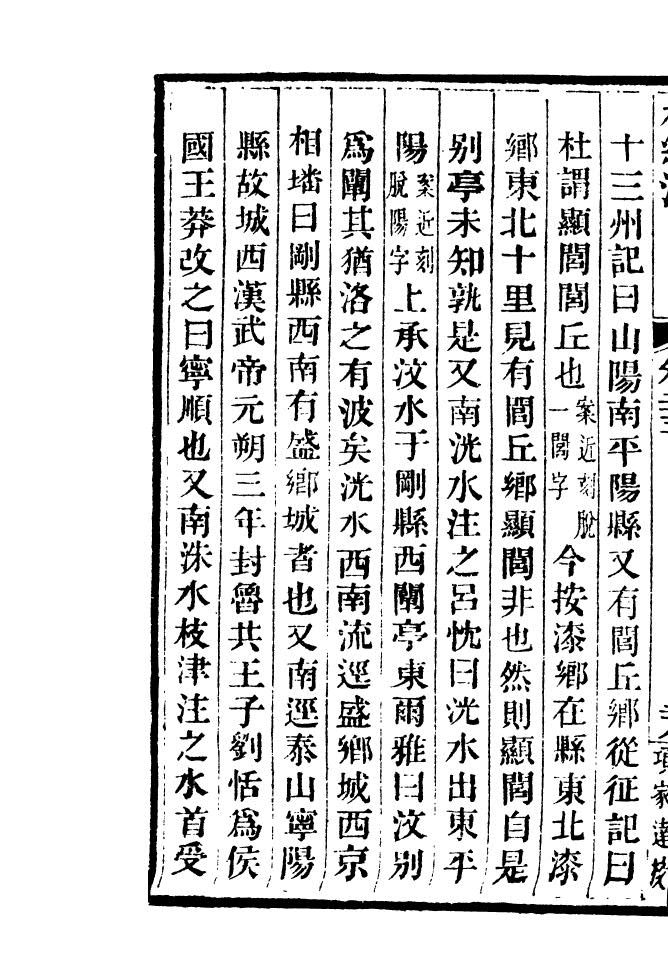 十三州記曰山陽南平陽縣又有閭丘鄉從征記曰
杜謂顯閭閭丘也案近刻脫一閭字今按漆鄉在縣東北漆
鄉東北十里見有閭丘鄉顯閭非也然則顯閭自是
别亭未知孰是又南洸水注之呂忱曰洸水出東平
陽案近刻脫陽字上承汶水于剛縣西闡亭東爾雅曰汶别
爲闡其猶洛之有波矣洸水西南流逕盛鄉城西京
相璠曰剛縣西南有盛鄉城者也又南逕泰山寧陽
縣故城西漢武帝元朔三年封魯共王子劉恬爲侯
國王莽改之曰寧順也又南洙水枝津注之水首受